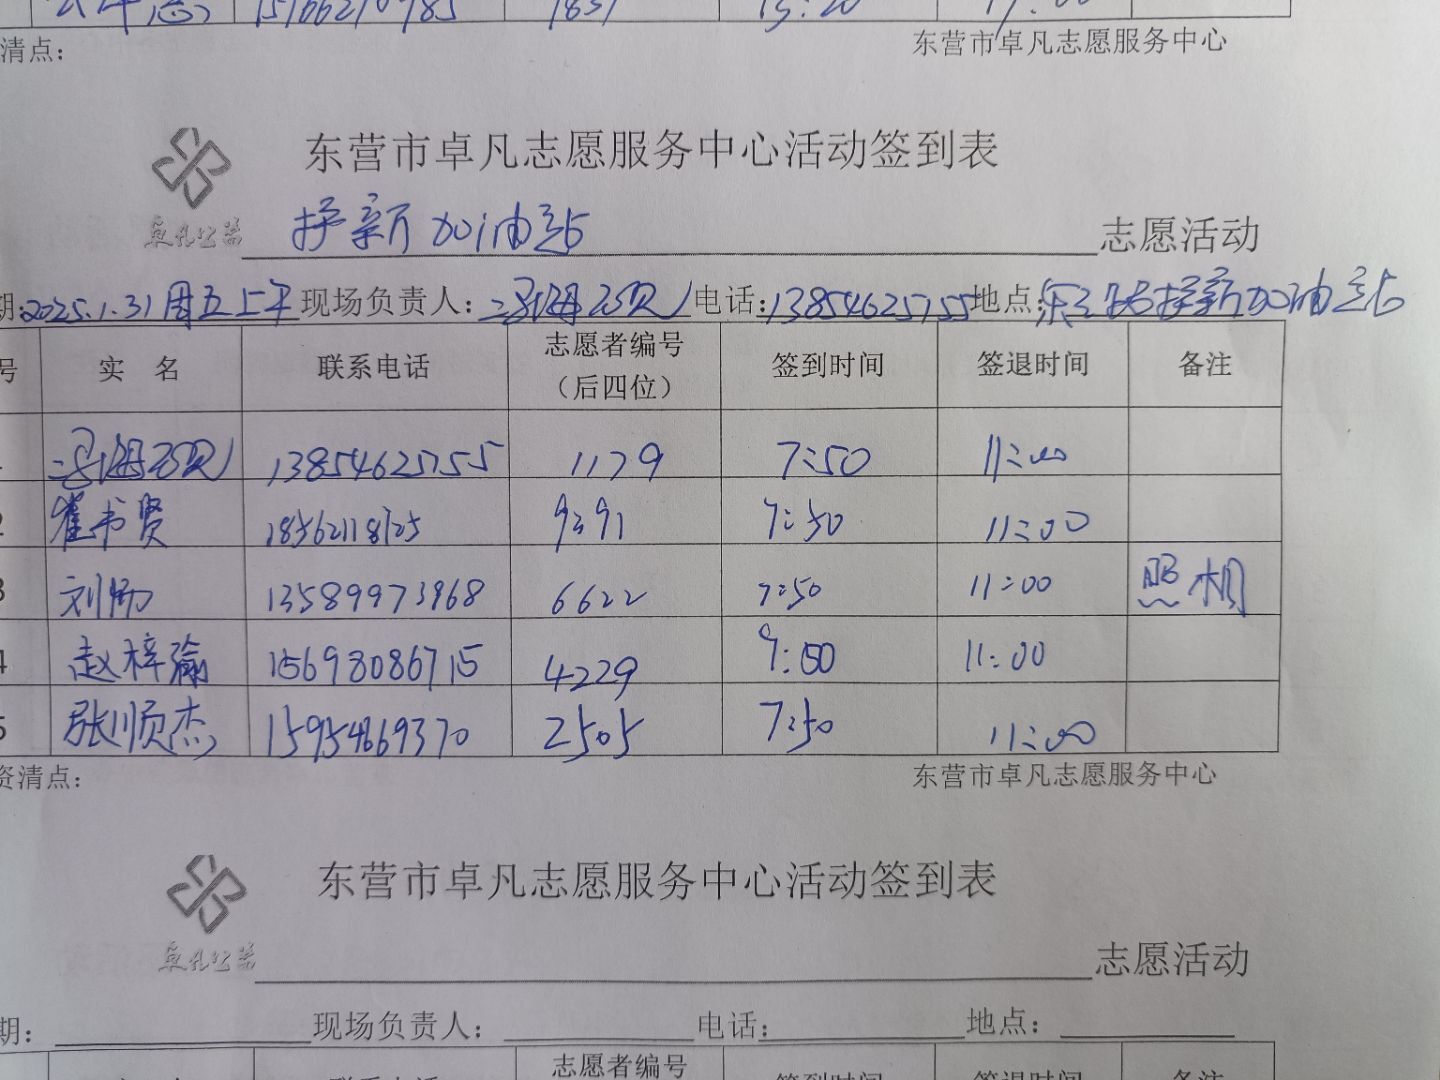 15166210985 1831 13:20 17:00
清点： 东营市卓凡志愿服务中心
东营市卓凡志愿服务中心活动签到表
卓凡公益 择新加油站 志愿活动
期:2025.1.31周五上午 现场负责人： 电话:13854625755 地点: 择新加油站
号 实 名 联系电话 志愿者编号（后四位） 签到时间 签退时间 备注
13854625755 1179 7:50 11:00
2 崔书贤 18562118725 9291 7:50 11:00
3 刘 13589973968 6622 7:50 11:00 照相
4 赵梓瑜 15698086715 4229 7:50 11:00
5 张顺杰 15954869370 2505 7:50 11:00
资清点： 东营市卓凡志愿服务中心
东营市卓凡志愿服务中心活动签到表
卓凡公益 志愿活动
期： 现场负责人： 电话: 地点：
志愿者编号